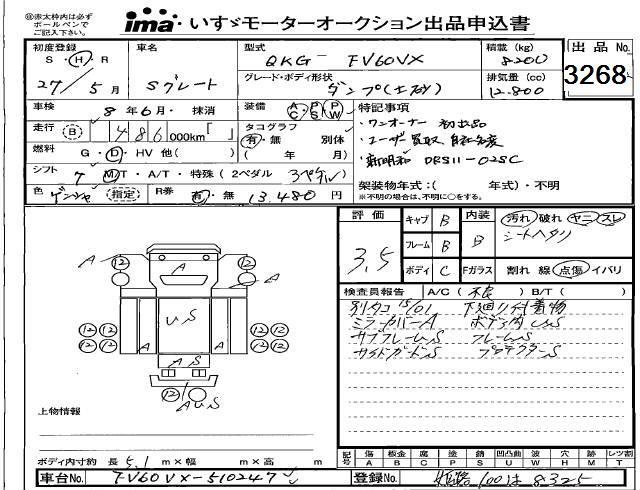 ※赤太枠内は必ず
ボールペンで
ご記入下さい。
ima いすゞモーターオークション出品申込書
初度登録 車名 型式 積載 (kg) 出品No.
S・H・R QKG- FV60VX 8200
27/5月 Sグレート グレード・ボディ形状 排気量 (cc) 3268
ダンプ(土砂) 12.800
車検 8年6月・抹消 装備 AC PS PW 特記事項
走行 (B) 486 000km「 」 タコグラフ ・ワンオーナー 初出品
有・無 別体 ・ユーザー買取、自社名変
燃料 G・D・HV 他( ) ( 年 月) ・新明和 DRS11-02SC
シフト 7 MT・A/T・特殊 (2ペダル 3ペダル)
架装物年式:( 年式)・不明
色 ゲンシャ (指定) R券 有・無 13.480円 ※不明の場合は、不明に○をする。
評価 キャブ B 内装 汚れ 破れ ヤニ スレ
3.5 フレーム B B シートヘタリ
ボディ C Fガラス 割れ 線 点傷 イバリ
検査員報告 A/C(不良) B/T( )
別タコ 15/01 下廻り付着物
ミラーカバーA ボデー内US
サブフレームS フレームS
サイドガードS プロテクターS
A 12 12
A
12 12 US 12 12
12 12 12 12
A A
AS
12 AUS
上物情報
ボディ内寸約 長 5.1 m×幅 m×高 m
記号 傷 板金 腐 塗 錆 凹凸曲 波 穴 跡 レツ割
A B C P S U W H M T
車台No. FV60VX-510247 登録No. 姫路 100 は 8325